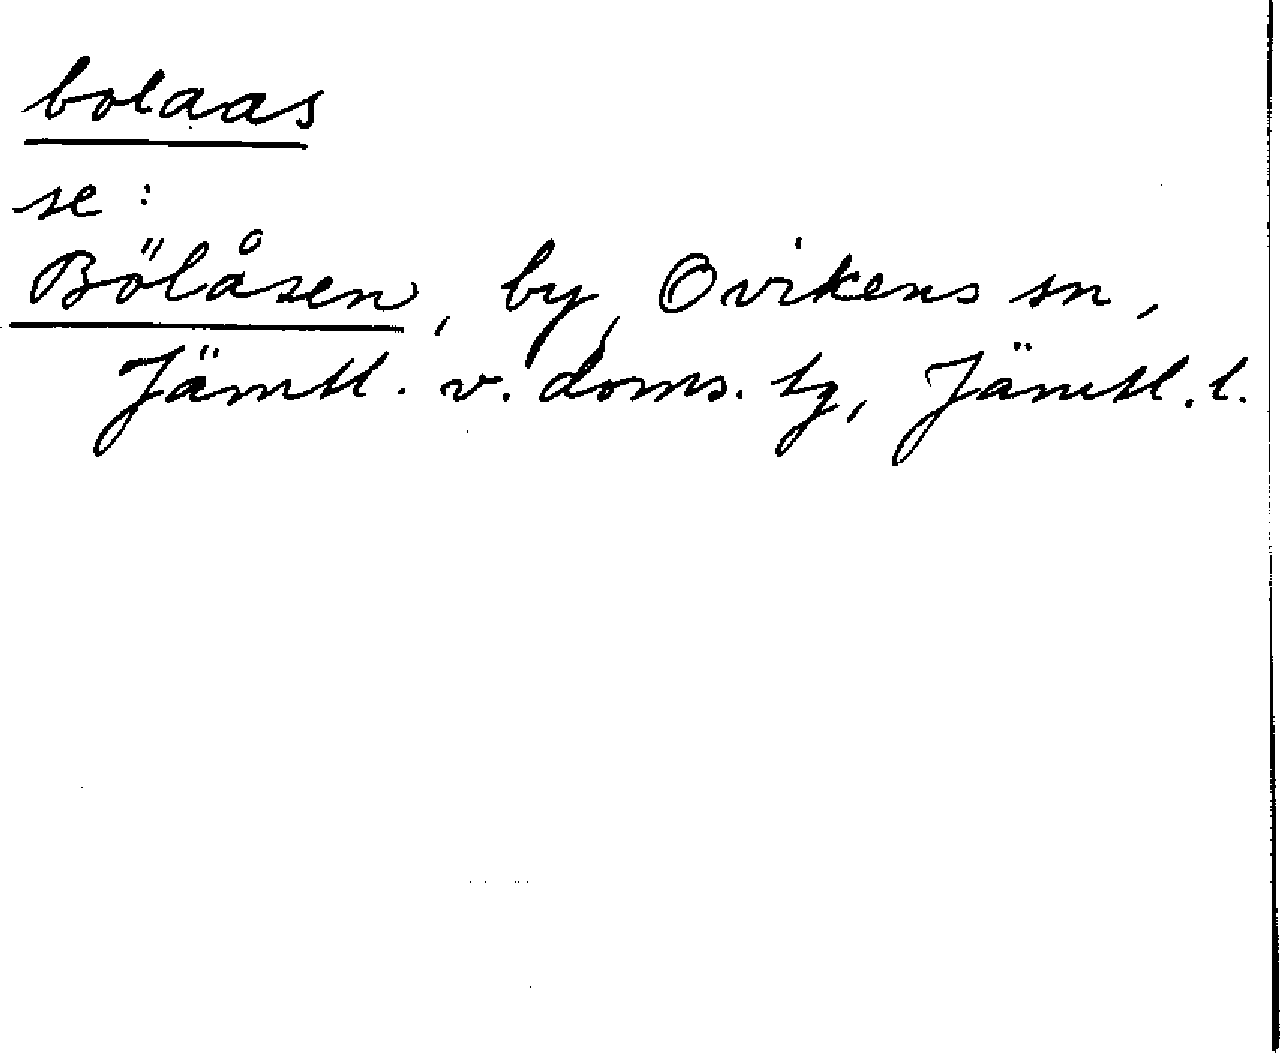 bolaas
se:
Bölåsen, by, Ovikens sn,
Jämtl. v. doms. tg, Jämtl. l.